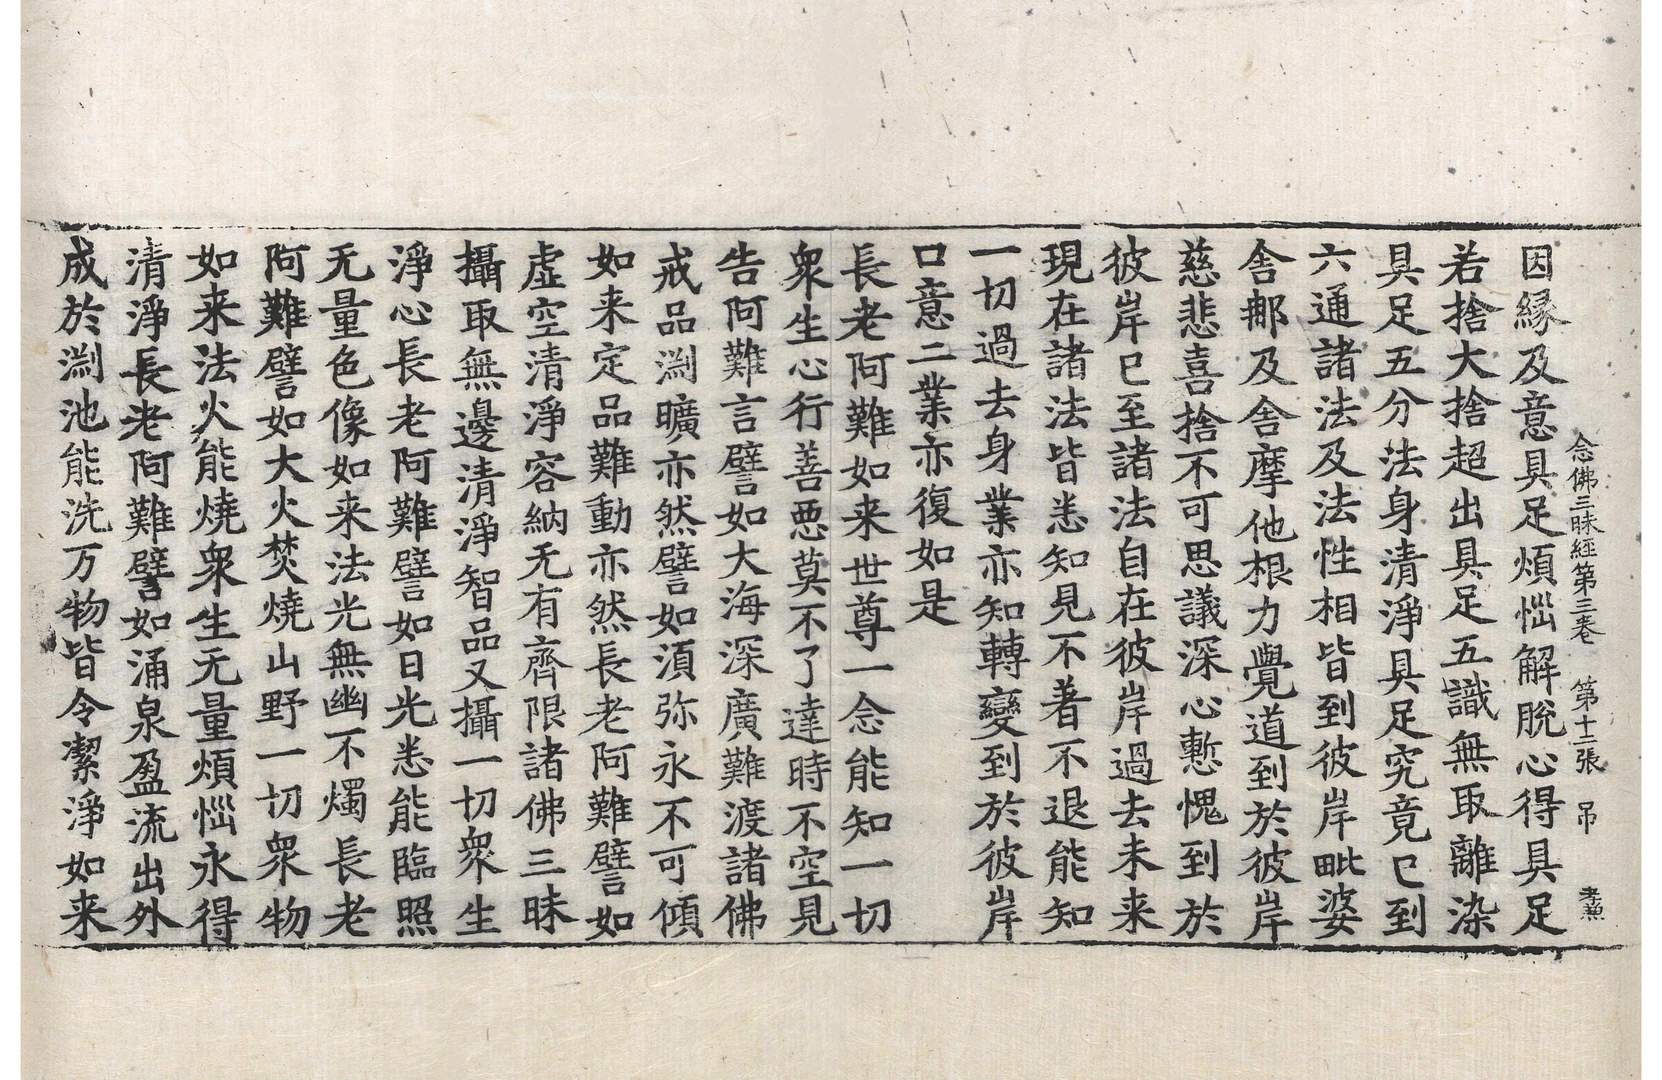 念佛三昧經第三卷　第十二張　吊　孝煎
因縁及意具足煩惱解脫心得具足
若捨大捨超出具足五識無取離染
具足五分法身清淨具足究竟已到
六通諸法及法性相皆到彼岸毗婆
舍那及舍摩他根力覺道到於彼岸
慈悲喜捨不可思議深心慙愧到於
彼岸已至諸法自在彼岸過去未来
現在諸法皆悉知見不著不退能知
一切過去身業亦知轉變到於彼岸
口意二業亦復如是
長老阿難如来世尊一念能知一切
衆生心行善悪莫不了達時不空見
告阿難言譬如大海深廣難渡諸佛
戒品渊曠亦然譬如湏弥永不可傾
如来定品難動亦然長老阿難譬如
虚空清淨容納无有齊限諸佛三昧
攝取無邊清淨智品又攝一切衆生
淨心長老阿難譬如日光悉能臨照
无量色像如来法光無幽不燭長老
阿難譬如大火焚燒山野一切衆物
如来法火能燒衆生无量煩惱永得
清淨長老阿難譬如涌泉盈流出外
成於渊池能洗万物皆令潔淨如来